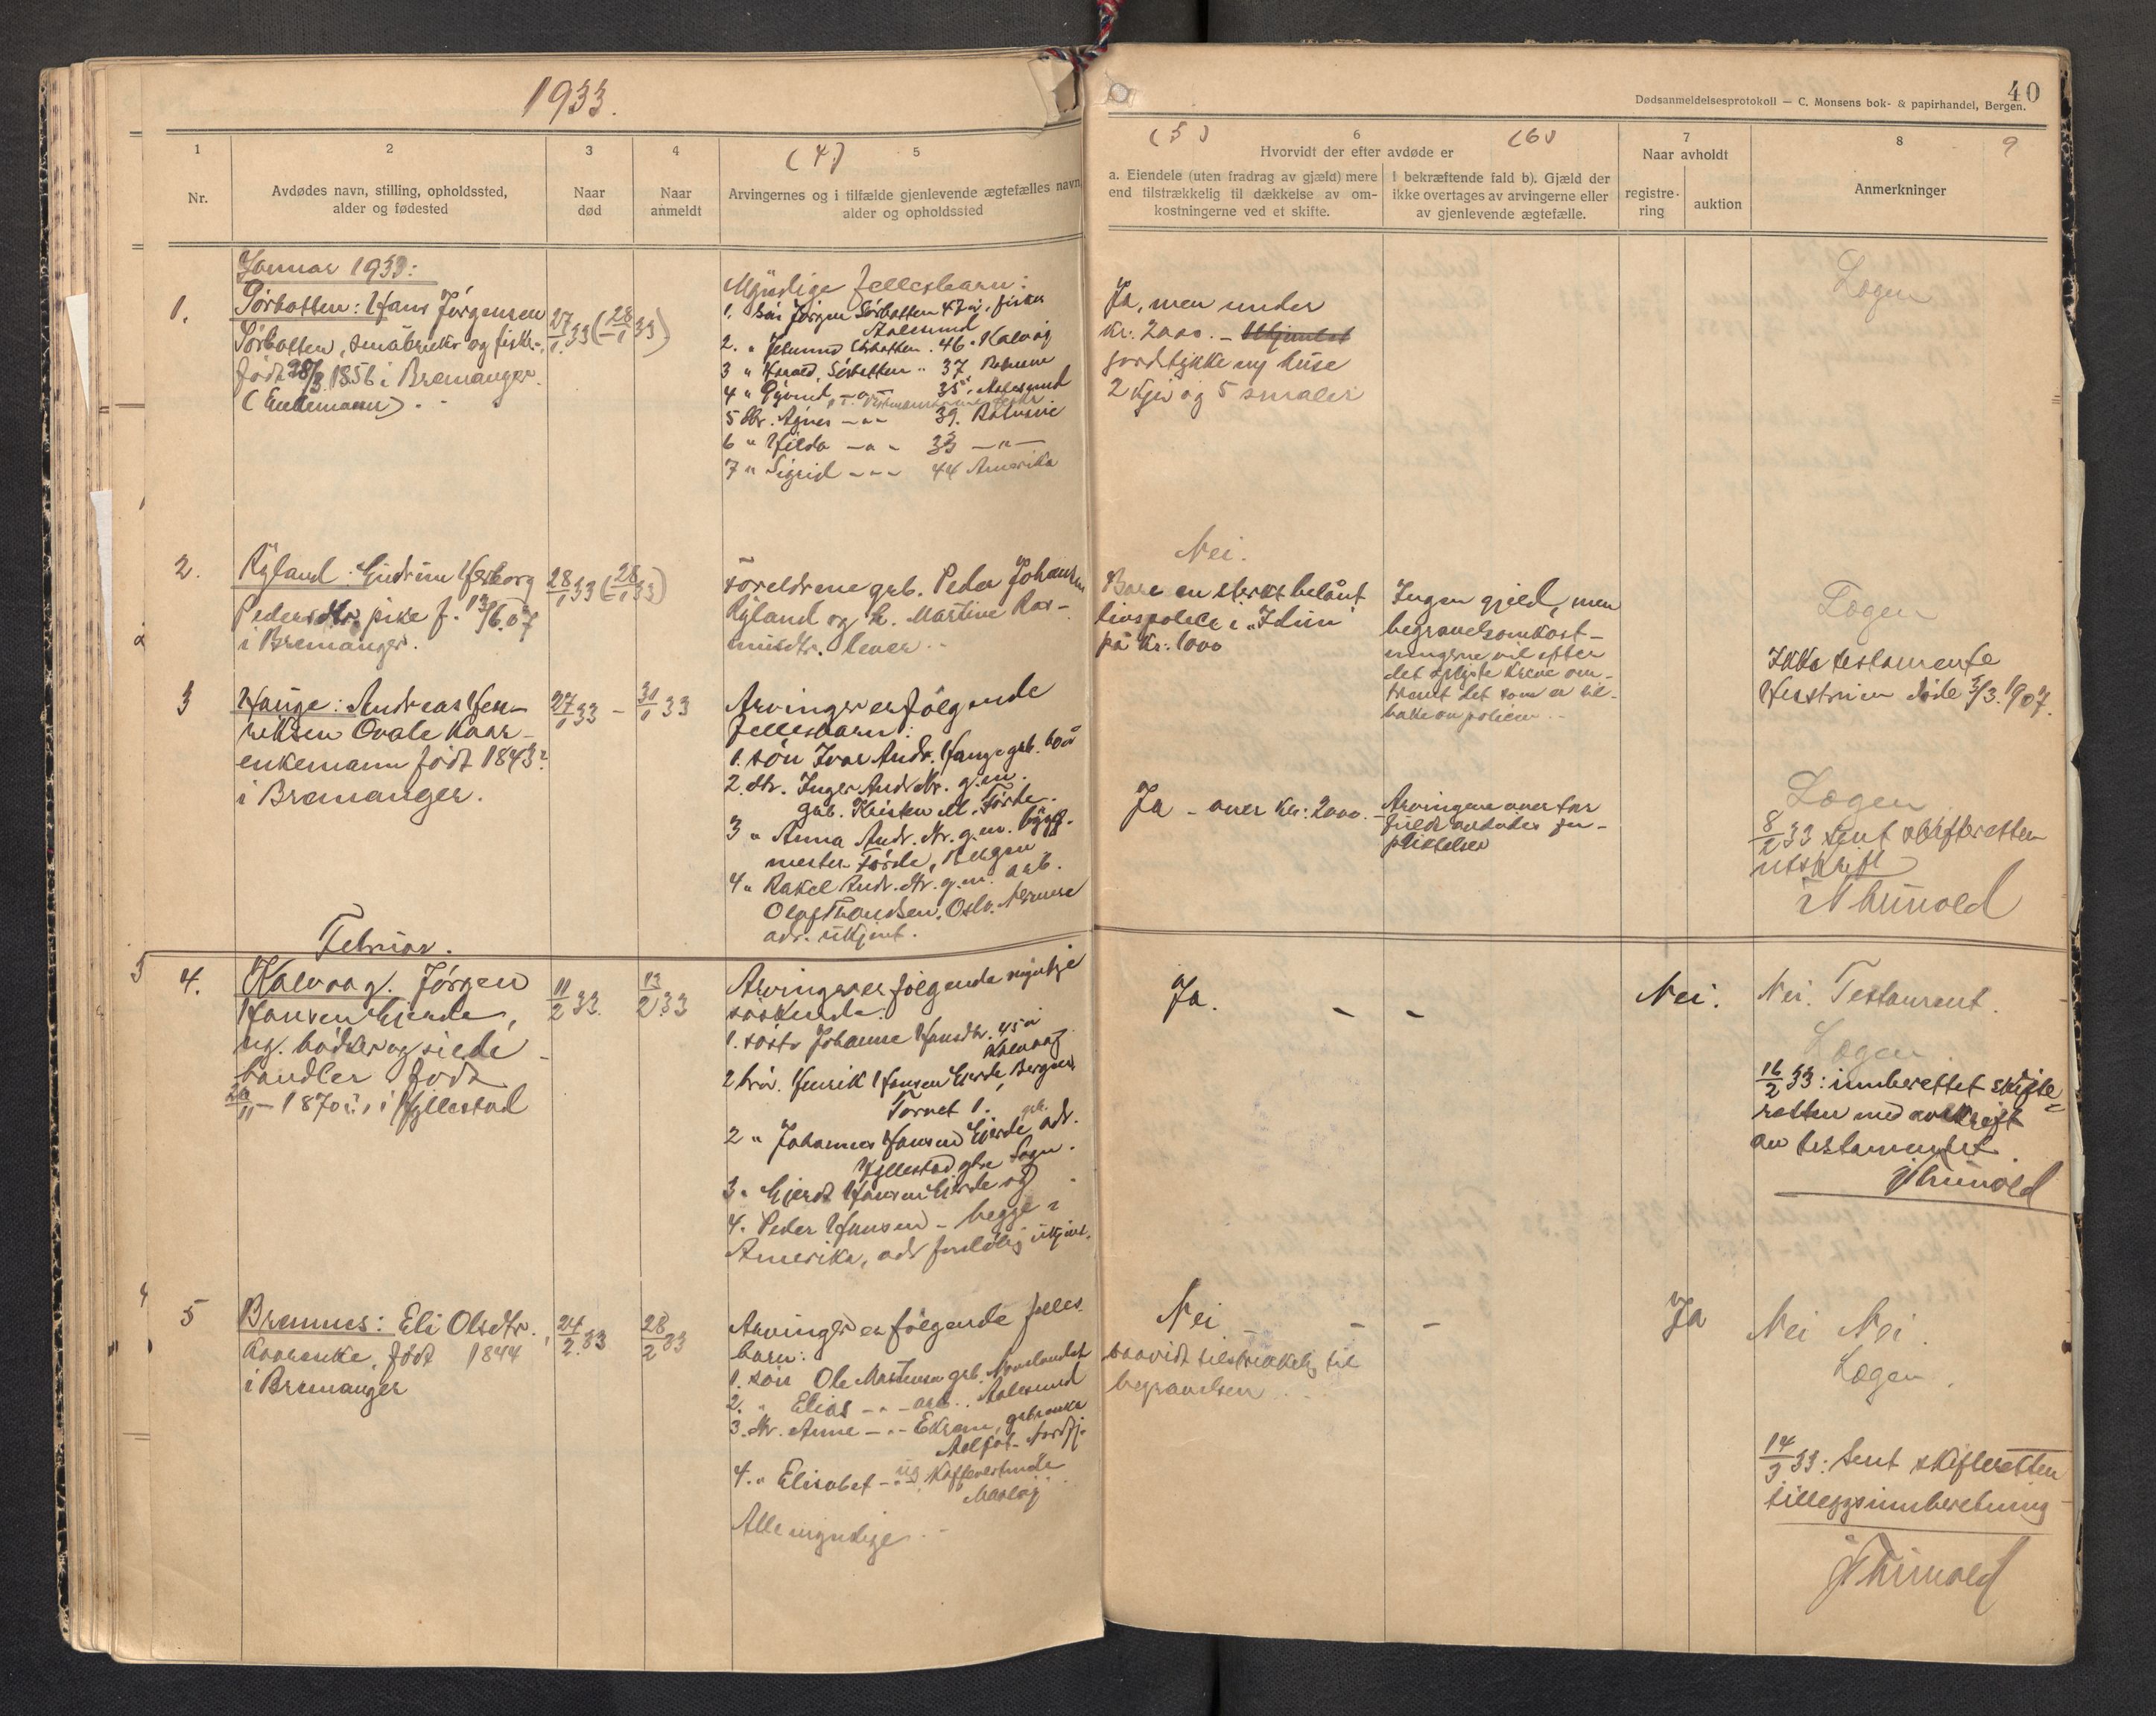 1933.
40
Dødsanmeldelsesprotokoll — C. Monsens bok- & papirhandel, Bergen.
1
2
3
4
(4)
5
(5)
6
(6)
7
8
9
Nr.
Avdødes navn, stilling, opholdssted,
alder og fødested
Naar
død
Naar
anmeldt
Arvingernes og i tilfælde gjenlevende ægtefælles navn
alder og opholdssted
Hvorvidt der efter avdøde er
a. Eiendele (uten fradrag av gjæld) mere
end tilstrækkelig til dækkelse av om-
kostningerne ved et skifte.
I bekræftende fald b). Gjæld der
ikke overtages av arvingerne eller
av gjenlevende ægtefælle.
Naar avholdt
registre-
ring
auktion
Anmerkninger
Januar 1933:
1.
Sørbotten: Hans Jørgensen
Sørbotten, småbruker og fisker,
født 28/3 1856 i Bremanger.
(Enkemann)
27/1 33 (28/1 33)
Myndige fellesbarn:
1. søn Jørgen Sørbotten 47 år, fisker
Aalesund
2. " Sørbotten. 46 " Kalvåg
3 " Harald Sørbotten " 37
4 " Øyvind 35 Aalesund
5 dtr. Agnes — " — 39.
6 " Hilda — " — 33 — " —
7 " Sigrid — " — 44 Amerika
Ja, men under
kr: 2000. –
jordstykke m/ huse
2 kjør og 5 smaler
Logen
2.
Rylånd: Gudrun Herborg
Pedersdtr. pike f. 13/6.07
i Bremanger.
28/1 33 (28/1 33)
Foreldrene grb. Peder Johansen
Ryland og h. Martine Ras-
musdtr. lever
Nei.
Bare en sterkt belånt
livspolice i "Idun"
på kr: 1000
Ingen gjeld, men
begravelsomkost-
ningerne vil efter
det oplyste kreve om-
trent det som er til-
bake av policen
Logen
3
Hauge: Andreas Hen-
riksen Ovale Kaar-
enkemann født 1843
i Bremanger.
27/1 33 – 31/1 33
Arvinger er følgende
fellesbarn:
1. søn Ivar Andr. Hauge grb. 60 år
2. dtr. Inger Andr.dtr. g.m.
grb. Kristen M. Førde.
3 " Anna Andr. dtr. g.m. bygg-
mester Førde, Bergen
4 " Rakel Andr. dtr. g.m. arb.
Olaf Thomsen, Oslo. Nermere
adr. ukjent.
Ja – over kr: 2000. –
Arvingene overtar
fuldt avdødes for-
pliktelser
Ikke testamente
Hustruen døde 5/3. 1907.
Logen
8/2 33 Sent skifteretten
utskrift
Februar.
4.
Kalvaag. Jørgen
Hansen Gjerde,
ug. bødker og silde
handler født
20/11 – 1870 i Hyllestad
11/2 33.
13/2 33
Arvinger er følgende myndige
søskende:
1. søster Johanne Hansdtr. 45 år
Kalvaag
2 bror. Henrik Hansen Gjerde, Bergen,
Torvet 1.
2 " Johannes Hansen Gjerde, adr.
Hyllestad Sogn.
3. " Gjert Hansen Gjerde og
4. Peder Hansen – begge i
Amerika, adr. foreløbig ukjent.
Ja.
– –
Nei.
Nei. Testament.
Logen
16/2 33: innberettet skifte
retten med avskrift
av testamentet.
5
Bremnes: Eli Olsdtr.
Kaarenke, født 1844
i Bremanger
24/2. 33
28/2 33
Arvinger er følgende felles
barn:
1. søn Ole Martinsen grb.
2. " Elias — " — arb. Aalesund
3. dtr. Anne — " — Ekrem, grb.enke
Aalfot – Nordfj.
4. " Elisabet — " ug. Kaffevertinde
Måløy
Alle myndige
Nei
tilstrekkelig til
begravelsen
– –
Ja
Nei Nei.
Logen.
14/3 33: Sent skifteretten
tilleggsinnberetning